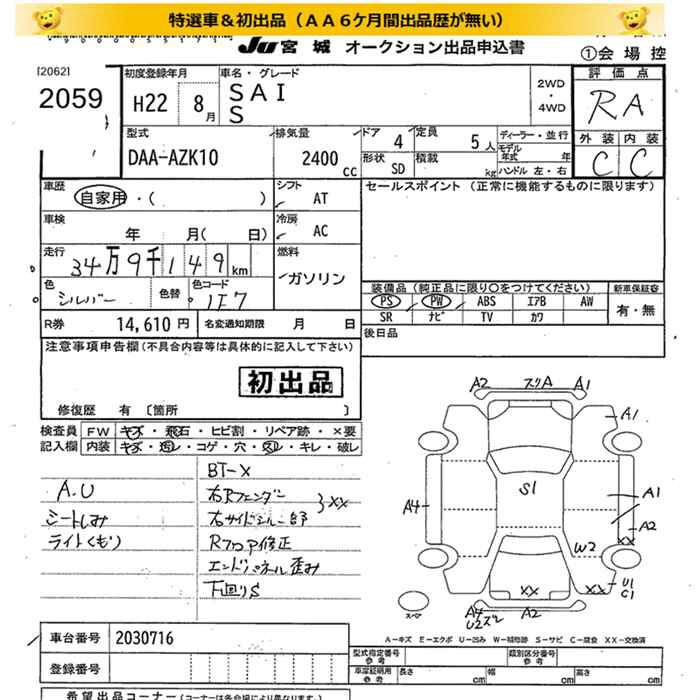 特選車＆初出品（ＡＡ６ケ月間出品歴が無い）
JU宮城 オークション出品申込書
①会場控
[2062]
2059
初度登録年月
H22 8月
車名・グレード
SAI
S
2WD
・
4WD
評価点
RA
外装 内装
C C
型式
DAA-AZK10
排気量
2400 cc
ドア 4
形状 SD
定員 5人
積載 kg
ディーラー・並行
モデル年式 年
ハンドル 左・右
車歴
自家用・( )
シフト
AT
セールスポイント（正常に機能するものに限ります）
車検
年 月( 日)
冷房
AC
走行
34万9千149km
燃料
ガソリン
色
シルバー
色替
色コード
1E7
装備品（純正品に限り〇をつけてください）
新車保証書
PS PW ABS エアB AW
SR ナビ TV カワ
有・無
R券 14,610円
名変通知期限 月 日
後日品
注意事項申告欄(不具合内容等は具体的に記入して下さい)
初出品
修復歴 有〔箇所
検査員記入欄
FW キズ・飛石・ヒビ割・リペア跡・×要
内装 キズ・汚レ・コゲ・穴・スレ・キレ・破レ
A.U
シートしみ
ライトくもり
BT-X
右Rフェンダー
右サイドシル一部
}XX
Rフロア修正
エンドパネル歪み
下回りS
A2 スリA A1
A1
S1
A4
A1
A2
XX
W2
XX
XX
U1
C1
スペア
A4
U2ズレ
A2
A－キズ E－エクボ U－凹み W－補修跡 S－サビ C－腐食 XX－交換済
車台番号 2030716
登録番号
型式指定番号 参考
類別区分番号 参考
車庫証明用 参考
長さ cm
幅 cm
高さ cm
希望出品コーナー